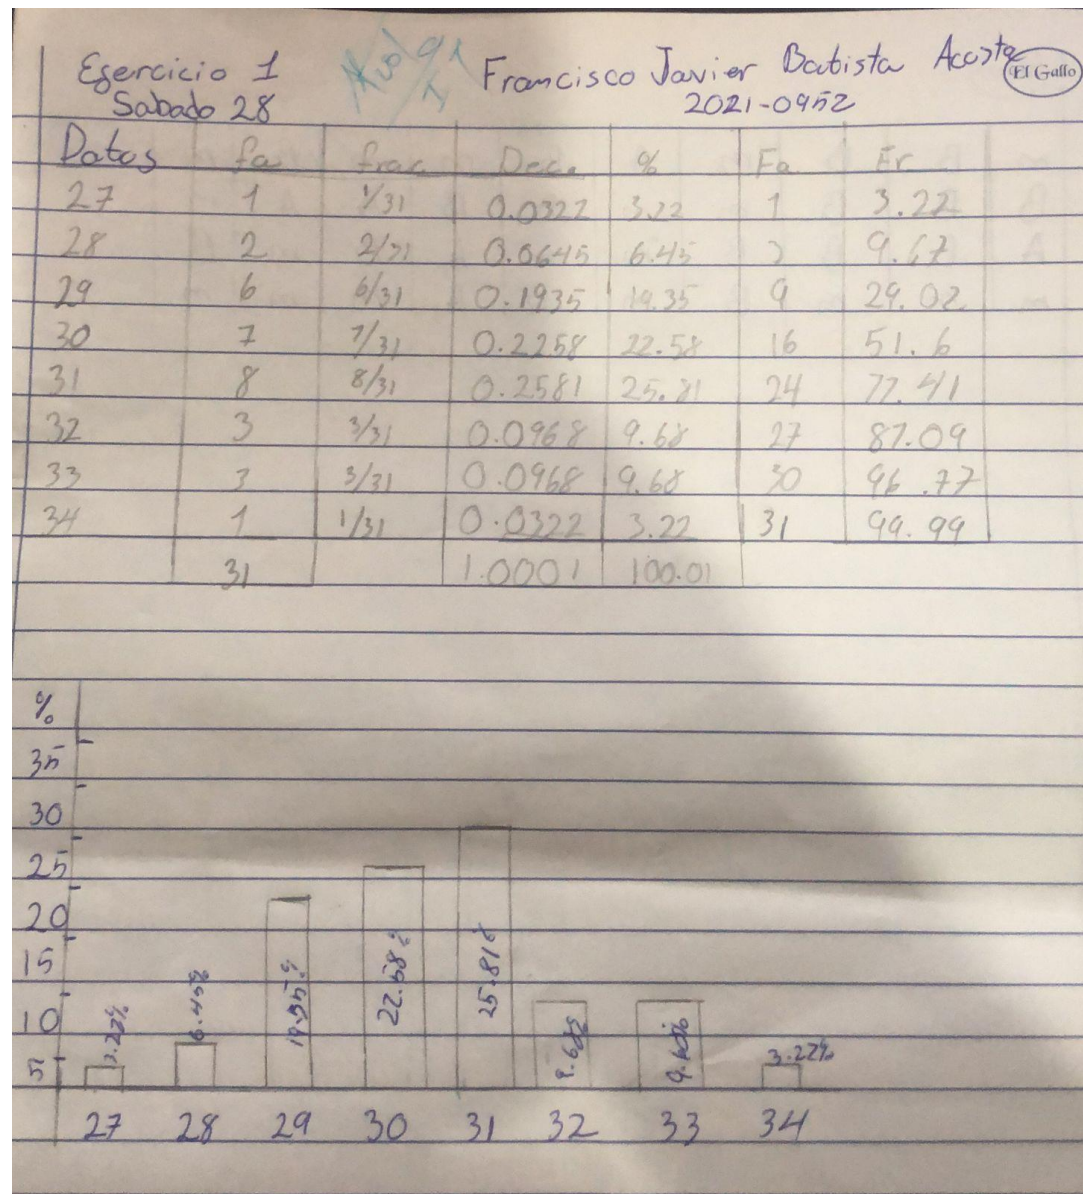 Esercicio 1
Francisco Javier Batista Acosta
El Gallo
Sabado 28
2021-0952
Datos fa frac. Dec. % Fa Fr
27 1 1/31 0.0322 3.22 1 3.22
28 2 2/31 0.0645 6.45 9.67
29 6 6/31 0.1935 19.35 9 29.02
30 7 7/31 0.2258 22.58 16 51.6
31 8 8/31 0.2581 25.81 24 77.41
32 3 3/31 0.0968 9.68 27 87.09
33 3 3/31 0.0968 9.68 30 96.77
34 1 1/31 0.0322 3.22 31 99.99
31 1.0001 100.01
%
35
30
25
20
15
10
5
3.22%
6.45%
19.35%
22.58%
25.81%
9.68%
9.68%
3.22%
27 28 29 30 31 32 33 34